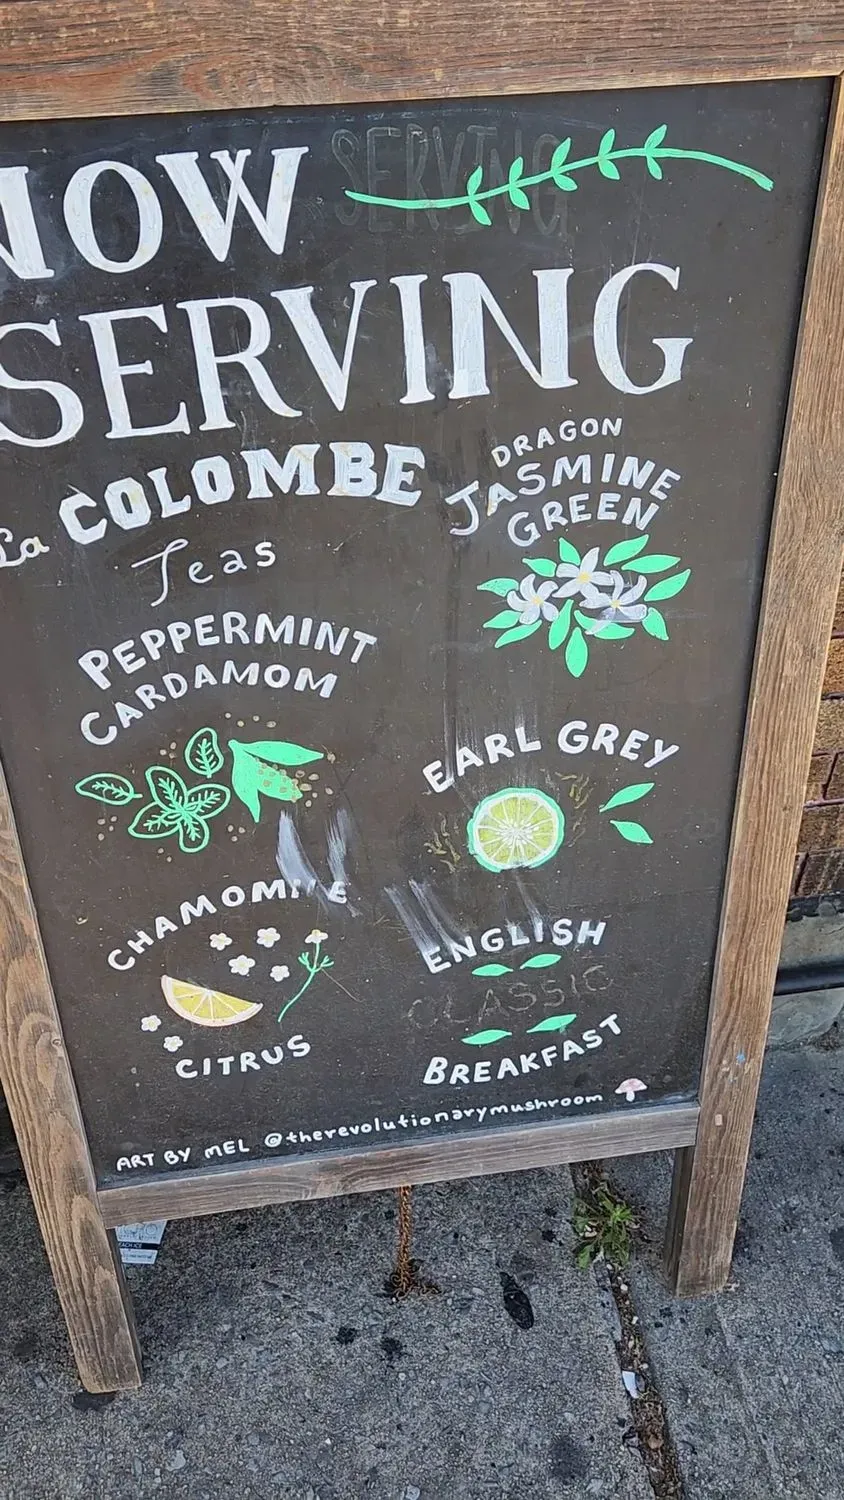 NOW
SERVING
SERVING
La COLOMBE
Teas
DRAGON
JASMINE
GREEN
PEPPERMINT
CARDAMOM
EARL GREY
CHAMOMILE
CITRUS
ENGLISH
CLASSIC
BREAKFAST
ART BY MEL @therevolutionarymushroom